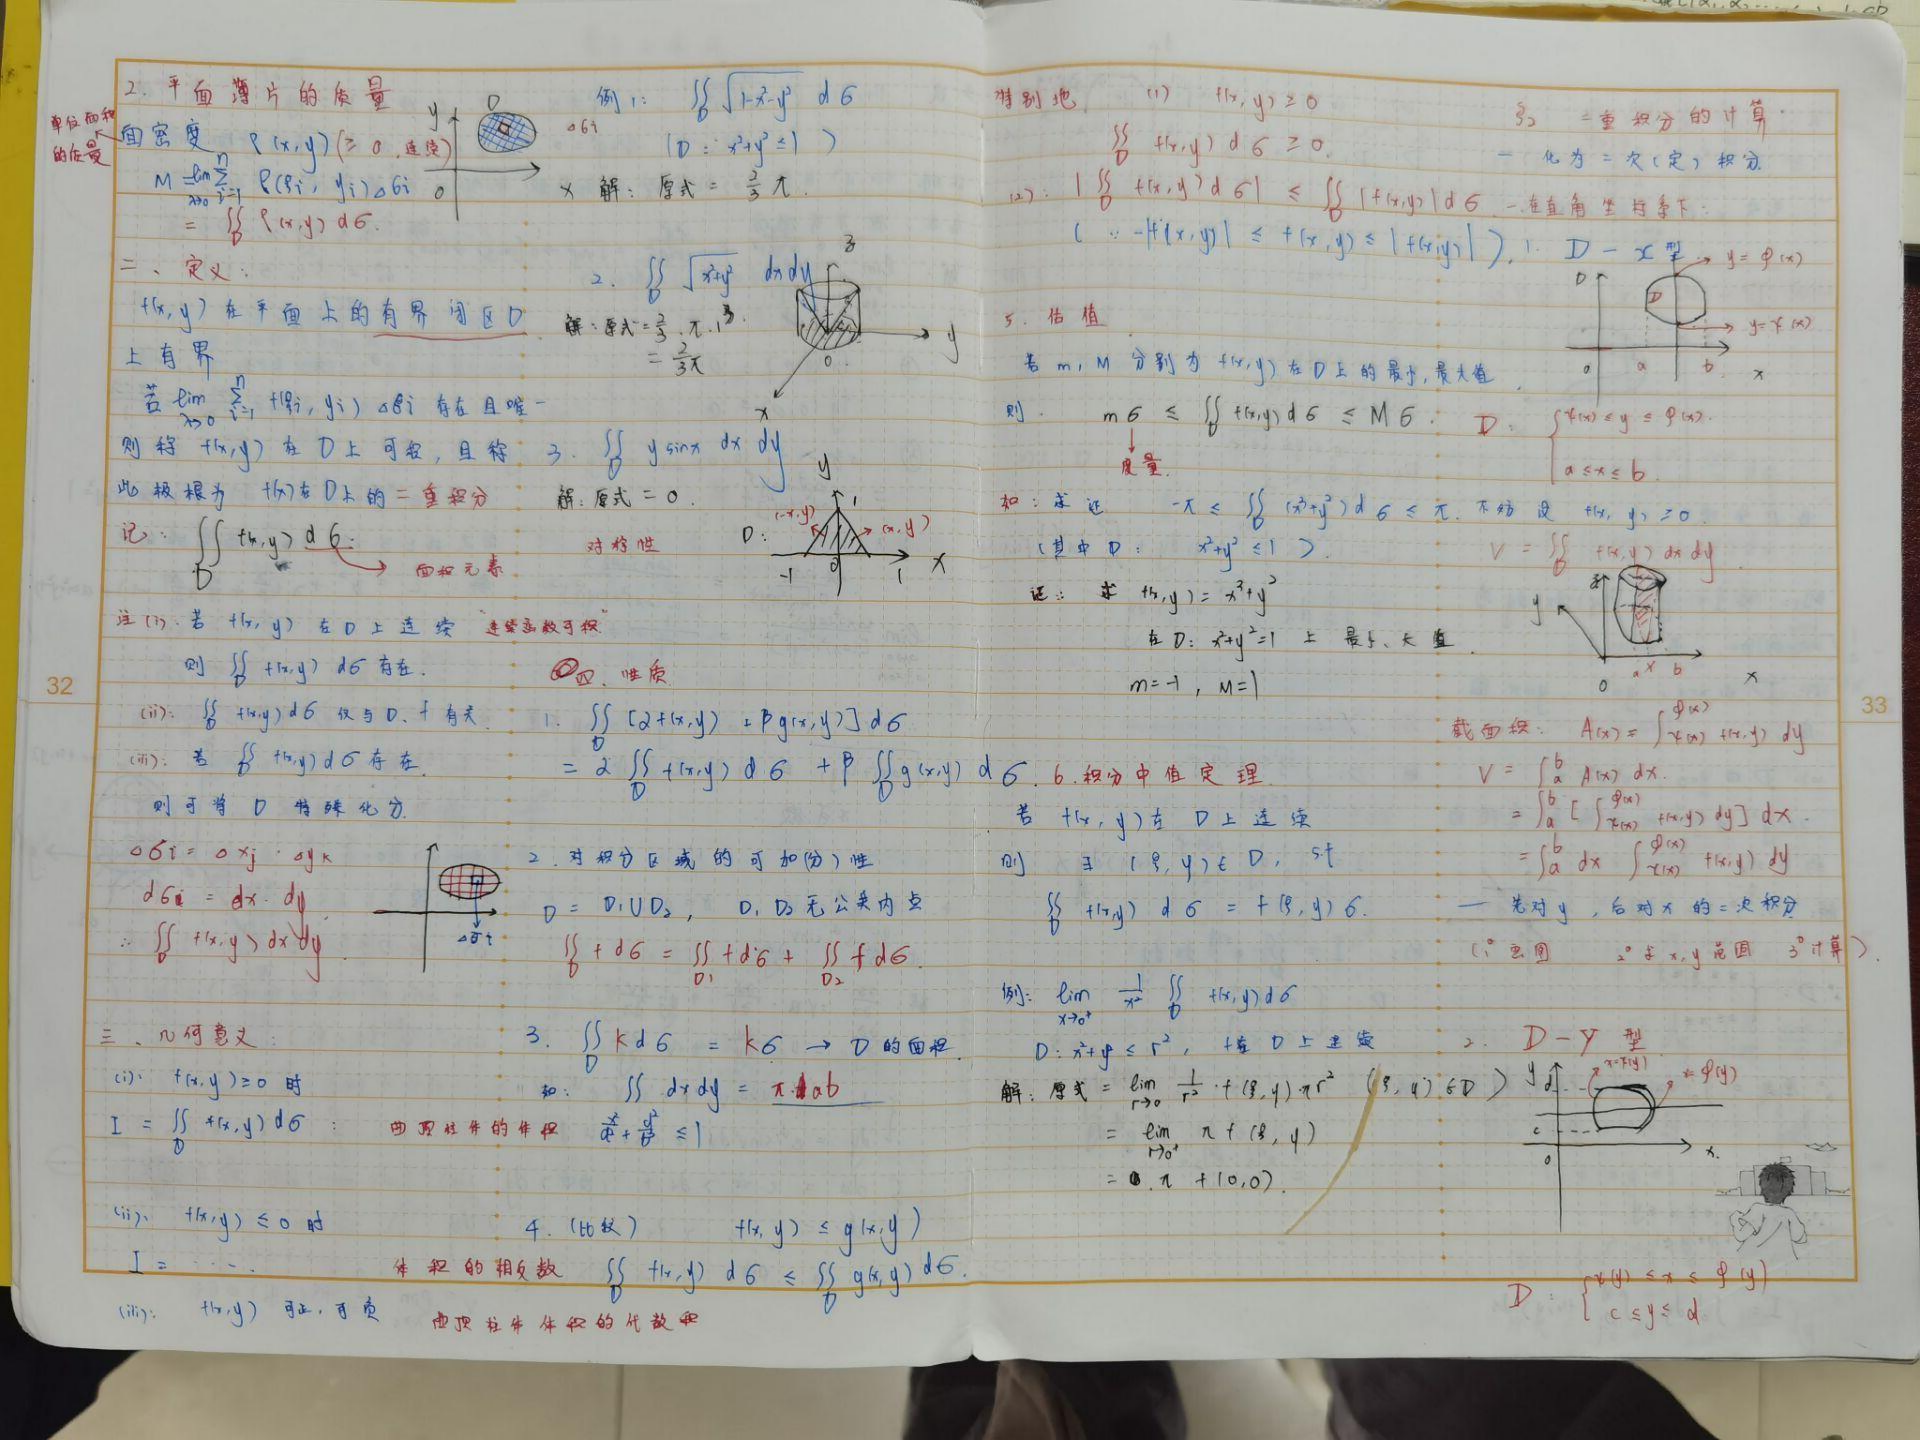 2. 平面薄片的质量
单位面积
的质量
面密度 ρ(x,y)(≥0,连续)
M = lim λ→0 Σ i=1 n ρ(ξi, yi)Δσi
= ∬D ρ(x,y) dσ.
y D Δσi
0 x
二、定义:
f(x,y) 在平面上的有界闭区D
上有界
若 lim λ→0 Σ i=1 n f(ξi, yi) Δσi 存在且唯一
则称 f(x,y) 在D上可积,且称
此极限为 f(x)在D上的二重积分
记: ∬D f(x,y) dσ.
面积元素
注(i). 若 f(x,y) 在D上连续 "连续函数可积"
则 ∬D f(x,y) dσ 存在.
(ii): ∬D f(x,y)dσ 仅与D、f有关
(iii): 若 ∬D f(x,y)dσ 存在.
则可将 D 特殊化分.
Δσi = Δxj · Δyk
dσi = dx · dy
∴ ∬D f(x,y) dxdy
Δσi
三、几何意义:
(i): f(x,y)≥0 时
I = ∬D f(x,y)dσ : 曲顶柱体的体积
(ii): f(x,y) ≤ 0 时
I = ...... 体积的相反数
(iii): f(x,y) 可正,可负 曲顶柱体体积的代数和
例1: ∬D √(1-x²-y²) dσ
(D: x²+y² ≤ 1 )
解: 原式 = 2/3 π.
2. ∬D √(x²+y²) dxdy
解:原式 = 2/3 · π · 1³.
= 2/3 π
z
y
0
x
3. ∬D y sinx dx dy
解:原式 = 0.
对称性
D:
y
(-x,y) 1 (x,y)
-1 0 1 x
四、性质
1. ∬D [αf(x,y) + βg(x,y)]dσ
= α ∬D f(x,y) dσ + β ∬D g(x,y) dσ
2. 对积分区域的可加(分)性
D = D1∪D2, D1 D2无公共内点
∬D f dσ = ∬D1 f dσ + ∬D2 f dσ.
3. ∬D kdσ = kσ → D的面积.
如: ∬ dxdy = πab
x²/a² + y²/b² ≤ 1
4. (比较) f(x,y) ≤ g(x,y)
∬D f(x,y) dσ ≤ ∬D g(x,y) dσ.
32
特别地 (1) f(x,y) ≥ 0
∬D f(x,y) dσ ≥ 0.
(2): |∬D f(x,y)dσ| ≤ ∬D |f(x,y)|dσ
( ∵ -|f(x,y)| ≤ f(x,y) ≤ |f(x,y)| ).
5. 估值
若 m, M 分别为 f(x,y) 在D上的最小,最大值.
则. mσ ≤ ∬D f(x,y)dσ ≤ Mσ.
度量.
如: 求证 -π ≤ ∬D (x³+y³)dσ ≤ π.
(其中D: x²+y² ≤ 1 ).
证: 求 f(x,y) = x³+y³
在D: x²+y²=1 上 最小、大值.
m=-1, M=1
6. 积分中值定理
若 f(x,y)在 D 上连续
则 ∃ (ξ,y) ∈ D, st
∬D f(x,y) dσ = f(ξ,y)σ.
例: lim x→0⁺ 1/x² ∬D f(x,y)dσ
D: x²+y² ≤ r², f在D上连续
解: 原式 = lim r→0 1/r² · f(ξ,y)·πr² (ξ,y)∈D)
= lim r→0⁺ π f(ξ,y)
= π f(0,0).
§2 二重积分的计算
— 化为二次(定)积分
一.在直角坐标系下:
1. D — X型
D y=φ(x)
D
y=ψ(x)
0 a b x
D: { ψ(x) ≤ y ≤ φ(x).
a ≤ x ≤ b
不妨设 f(x,y) ≥0.
V = ∬D f(x,y) dxdy
z
y
0 a x b x
截面积: A(x) = ∫ψ(x) φ(x) f(x,y) dy
V = ∫a b A(x) dx.
= ∫a b [ ∫ψ(x) φ(x) f(x,y) dy] dx.
= ∫a b dx ∫ψ(x) φ(x) f(x,y) dy
— 先对y,后对x的二次积分
(1° 画图 2° 求x,y范围 3° 计算).
2. D — Y型
x=ψ(y)
y d x=φ(y)
c
0 x.
D: { ψ(y) ≤ x ≤ φ(y)
c ≤ y ≤ d
33